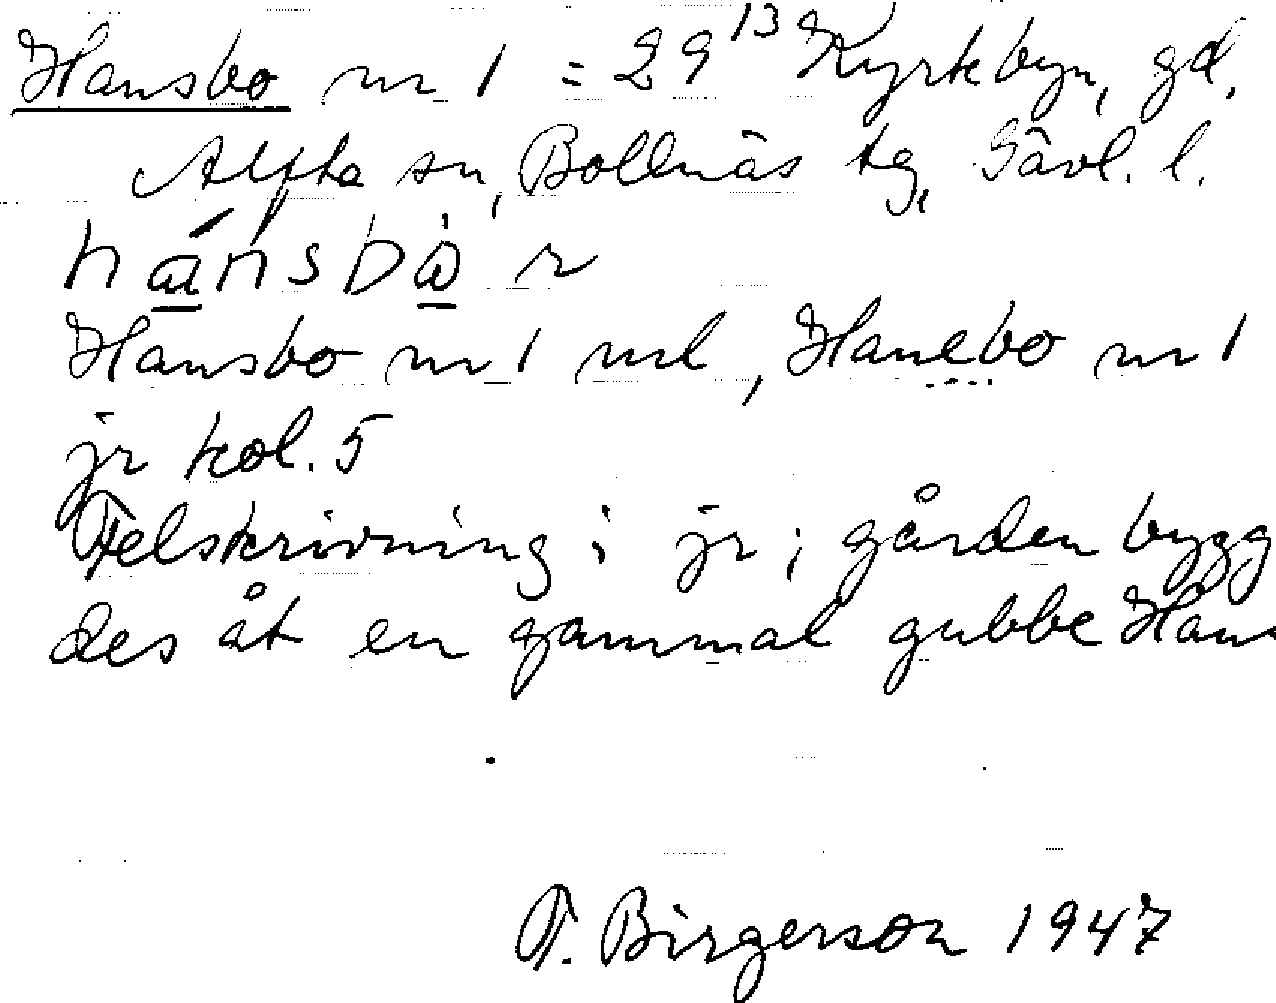 Hansbo nr 1 = 29¹³ Kyrkbyn, gd,
Alfta sn, Bollnäs tg, Gävl. l.
hánsbò r
Hansbo nr 1 ml, Hanebo nr 1
jr kol. 5
Felskrivning i jr; gården bygg
des åt en gammal gubbe Hans
T. Birgerson 1947